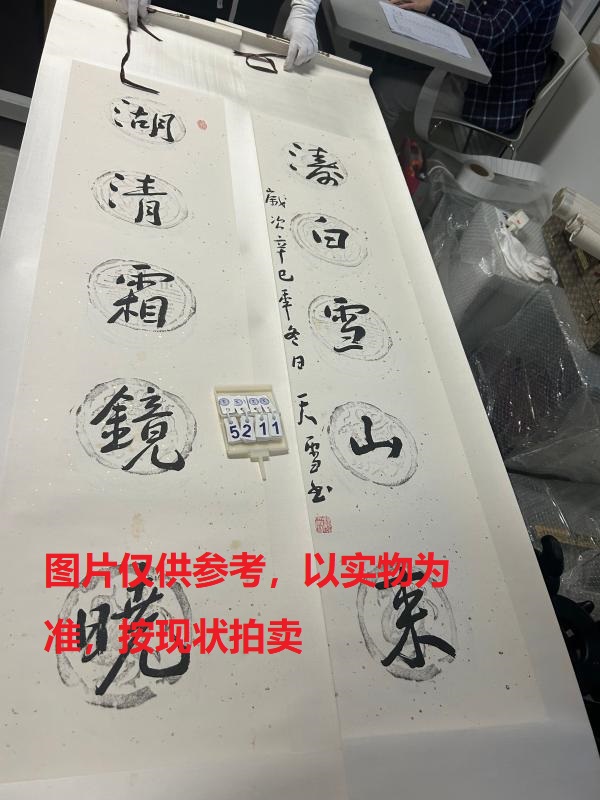 湖清霜鏡曉
涛白雪山来
歲次辛巳年冬日 天雪书
5211
图片仅供参考，以实物为
准，按现状拍卖